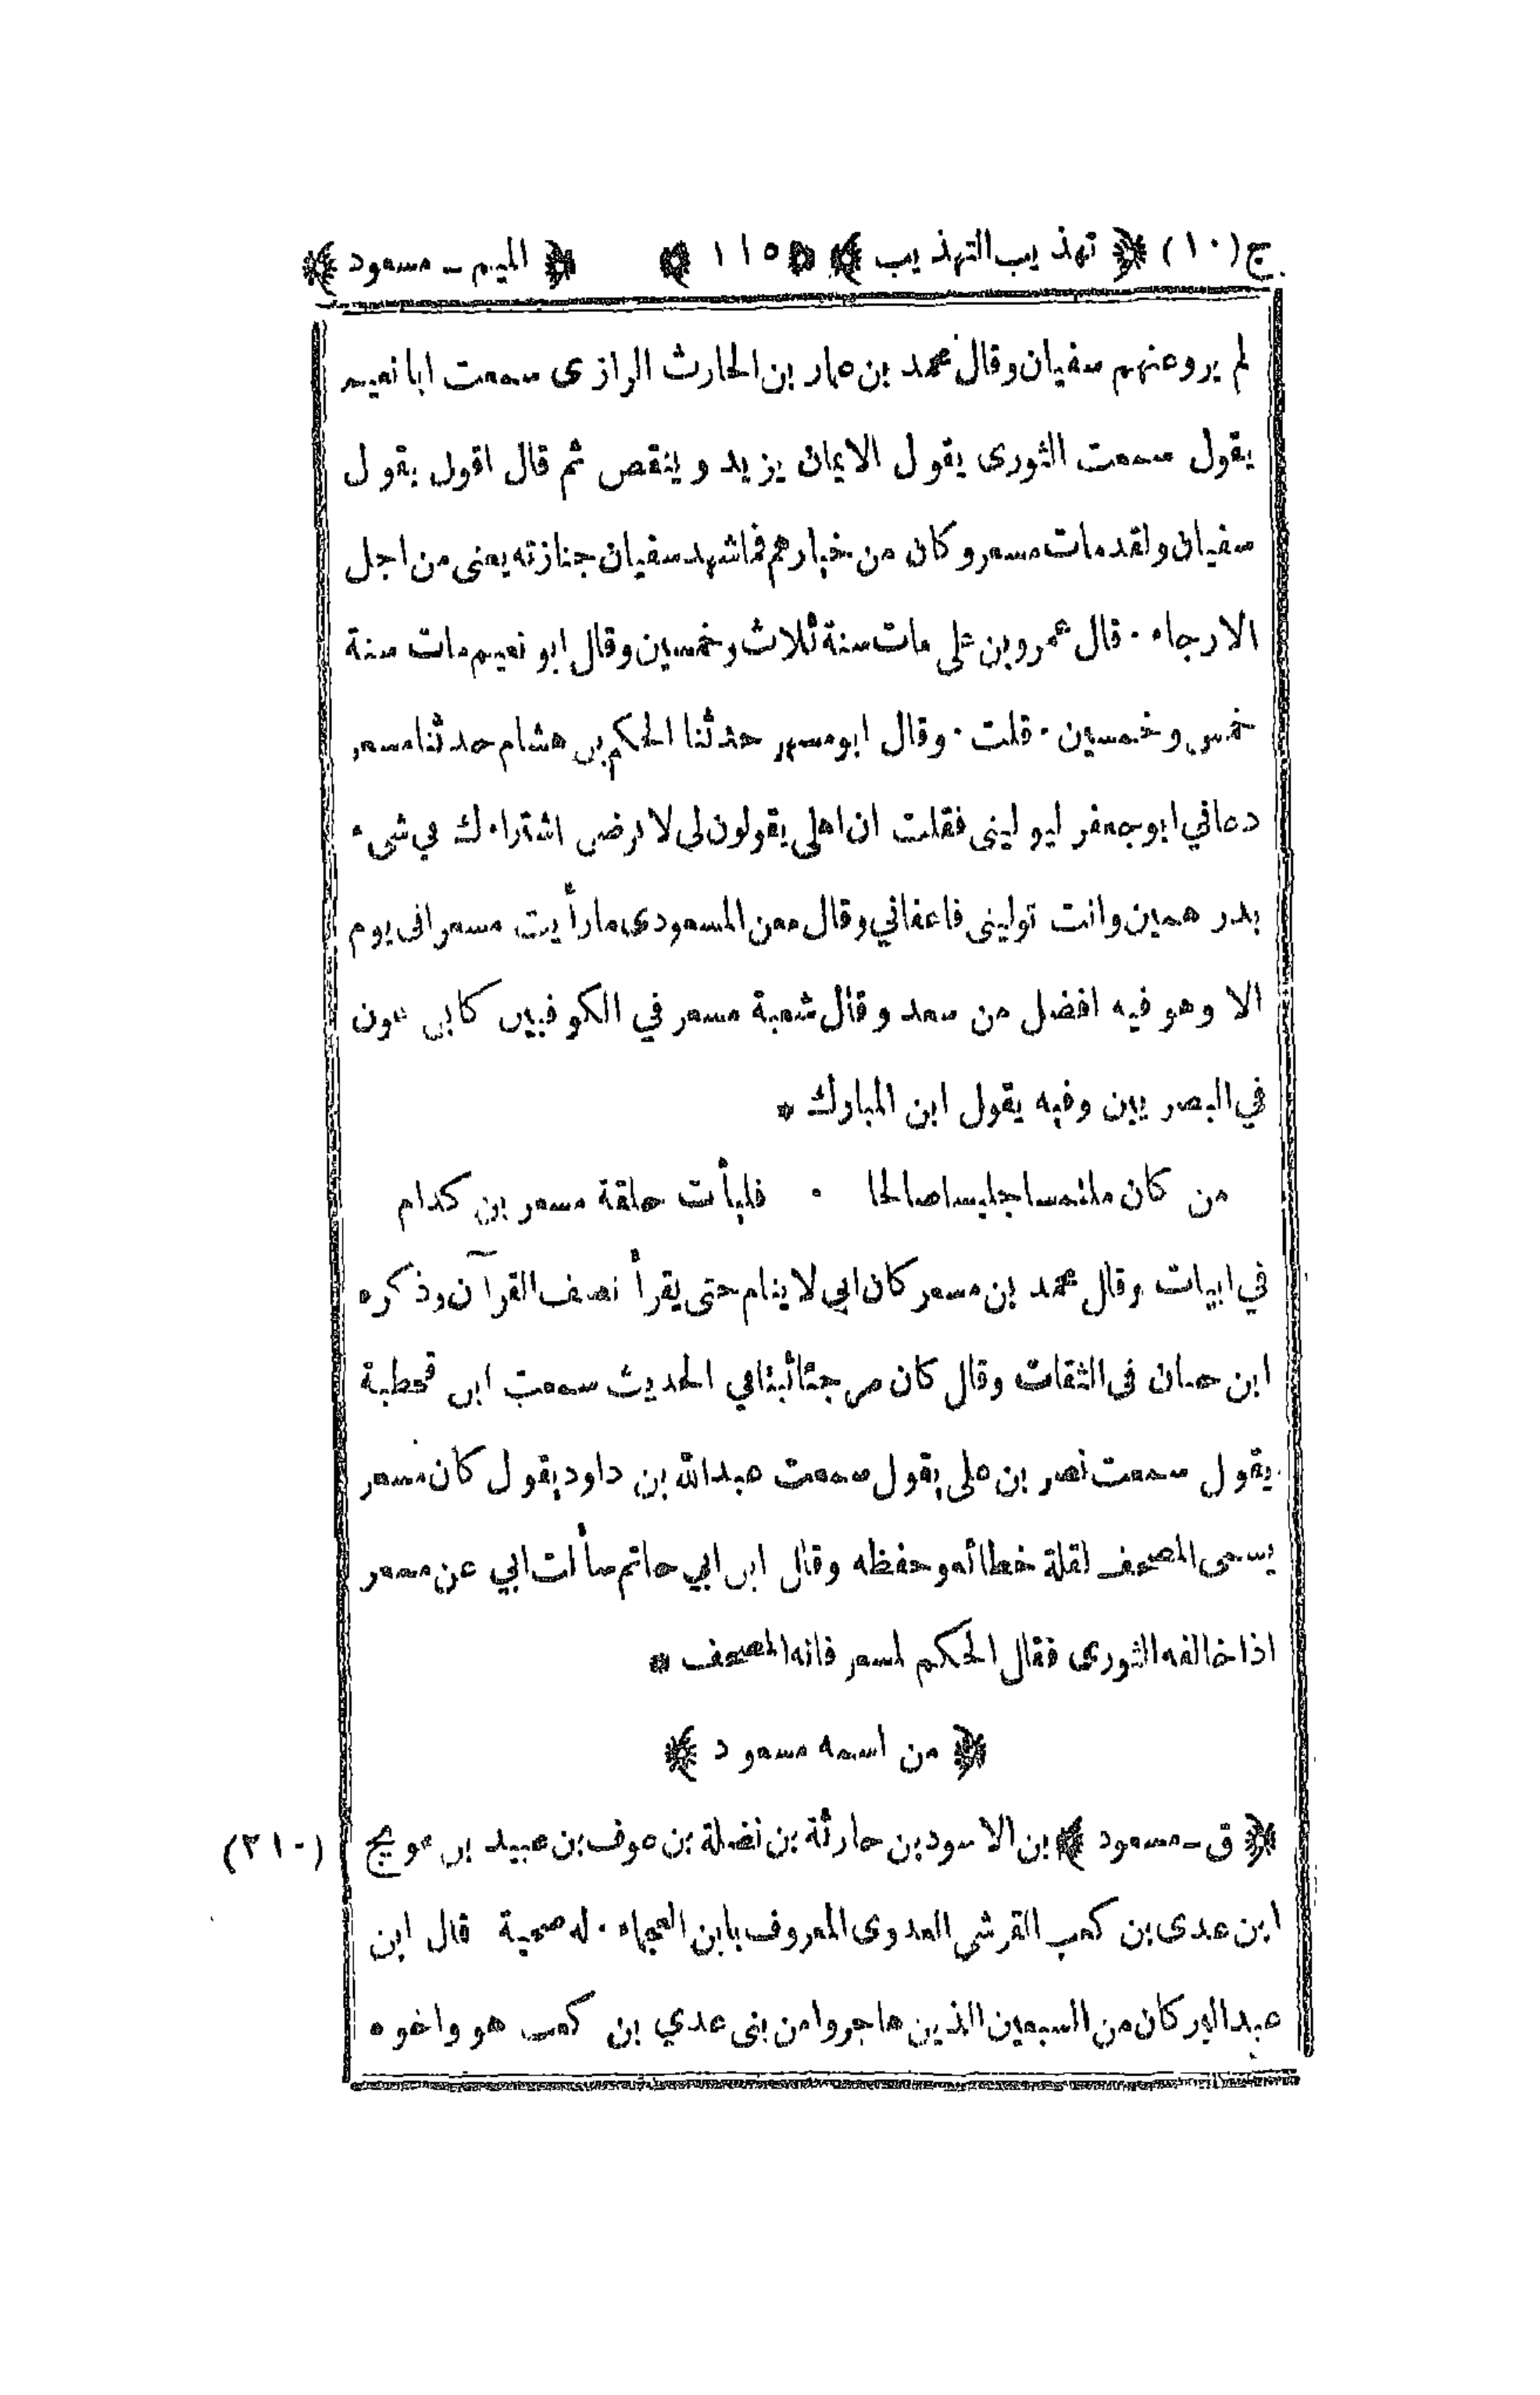 ج(١٠) ﴿ تهذيب التهذيب ﴾ ﴿ ١١٥ ﴾ ﴿ الميم - مسعود ﴾
لم يروعنهم سفيان وقال محمد بن عمار بن الحارث الرازى سمعت ابا نعيم
يقول سمعت الثورى يقول الايمان يزيد وينقص ثم قال اقول بقول
سفيان ولقد مات مسعر وكان من خيارهم فما شهد سفيان جنازته يعنى من اجل
الارجاء ٠ قال عمرو بن على مات سنة ثلاث وخمسين وقال ابو نعيم مات سنة
خمس وخمسين ٠ قلت ٠ وقال ابو مسهر حدثنا الحكم بن هشام حدثنا مسعر
دعاني ابو جعفر ليولينى فقلت ان اهلى يقولون لى لا نرضى اشتراءك في شىء
بدرهمين وانت تولينى فاعفاني وقال معن المسعودى ما رأيت مسعرا فى يوم
الا وهو فيه افضل من سعد وقال شعبة مسعر في الكوفيين كابن عون
في البصريين وفيه يقول ابن المبارك *
من كان ملتمسا جليسا صالحا ٠ فليأت حلقة مسعر بن كدام
في ابيات وقال محمد بن مسعر كان ابي لا ينام حتى يقرأ نصف القرآن وذكره
ابن حبان فى الثقات وقال كان مرجئا ثبتا في الحديث سمعت ابن قحطبة
يقول سمعت نصر بن على يقول سمعت عبدالله بن داود يقول كان مسعر
يسمى المصحف لقلة خطائه وحفظه وقال ابن ابي حاتم سألت ابي عن مسعر
اذا خالفه الثورى فقال الحكم لمسعر فانه المصحف *
﴿ من اسمه مسعود ﴾
﴿ ق - مسعود ﴾ بن الاسود بن حارثة بن نضلة بن عوف بن عبيد بن عويج (٢١٠)
ابن عدى بن كعب القرشى العدوى المعروف بابن العجماء ٠ له صحبة قال ابن
عبد البر كان من السبعين الذين هاجروا من بنى عدي بن كعب هو واخوه